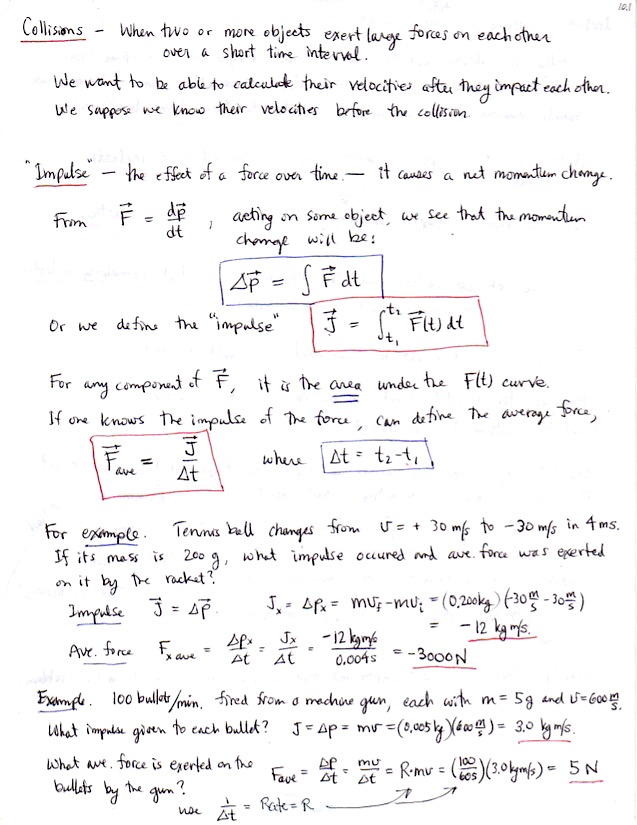 10.1
Collisions – When two or more objects exert large forces on each other
over a short time interval.
We want to be able to calculate their velocities after they impact each other.
We suppose we know their velocities before the collision.
"Impulse" – the effect of a force over time. — it causes a net momentum change.
From F⃗ = dp⃗/dt , acting on some object, we see that the momentum
change will be:
Δp⃗ = ∫ F⃗ dt
Or we define the "impulse" J⃗ = ∫_{t₁}^{t₂} F⃗(t) dt
For any component of F⃗, it is the area under the F(t) curve.
If one knows the impulse of the force, can define the average force,
F⃗ave = J⃗/Δt where Δt = t₂-t₁
For example. Tennis ball changes from v = + 30 m/s to -30 m/s in 4 ms.
If its mass is 200 g, what impulse occured and ave. force was exerted
on it by the racket?
Impulse J⃗ = Δp⃗. Jx = Δpx = mvf - mvi = (0.200kg)(-30 m/s - 30 m/s)
= -12 kg m/s.
Ave. force Fx ave = Δpx/Δt = Jx/Δt = -12 kg m/s / 0.004s = -3000N
Example. 100 bullets/min. fired from a machine gun, each with m = 5g and v=600 m/s.
What impulse given to each bullet? J = Δp = mv = (0.005 kg)(600 m/s) = 3.0 kg m/s.
What ave. force is exerted on the
bullets by the gun? Fave = Δp/Δt = mv/Δt = R·mv = (100/60s)(3.0 kg m/s) = 5 N
use 1/Δt = Rate = R